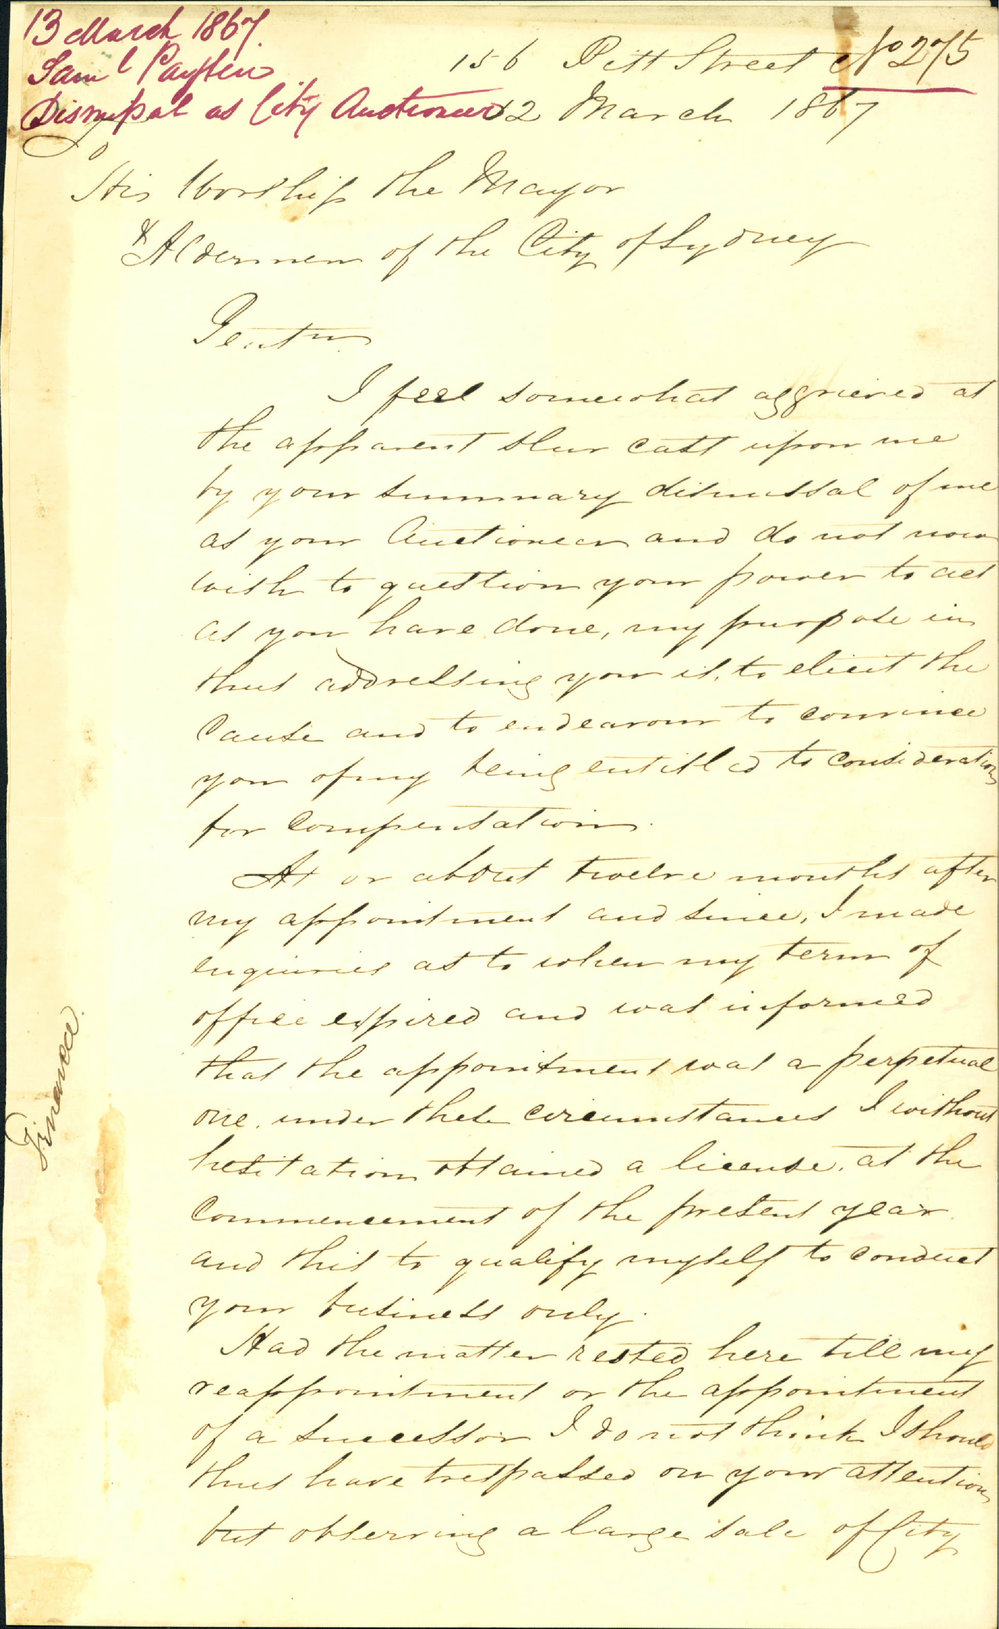 13 March 1867.
Saml Payten
Dismissal as City Auctioneer
No 275
156 Pitt Street
12 March 1867
His Worship the Mayor
& Aldermen of the City of Sydney
Gentn
I feel somewhat aggrieved at
the apparent slur cast upon me
by your summary dismissal of me
as your Auctioneer and do not now
wish to question your power to act
as you have done, my purpose in
thus addressing you is, to elicit the
Cause and to endeavour to convince
you of my being entitled to consideration
for compensation.
At or about twelve months after
my appointment and since, I made
enquiries as to when my term of
office expired and was informed
that the appointment was a perpetual
one. under these circumstances I without
hesitation obtained a license. at the
Commencement of the present year
and this to qualify myself to conduct
your business only.
Had the matter rested here till my
reappointment or the appointment
of a successor I do not think I should
thus have trespassed on your attention
but observing a large sale of City
Finance.